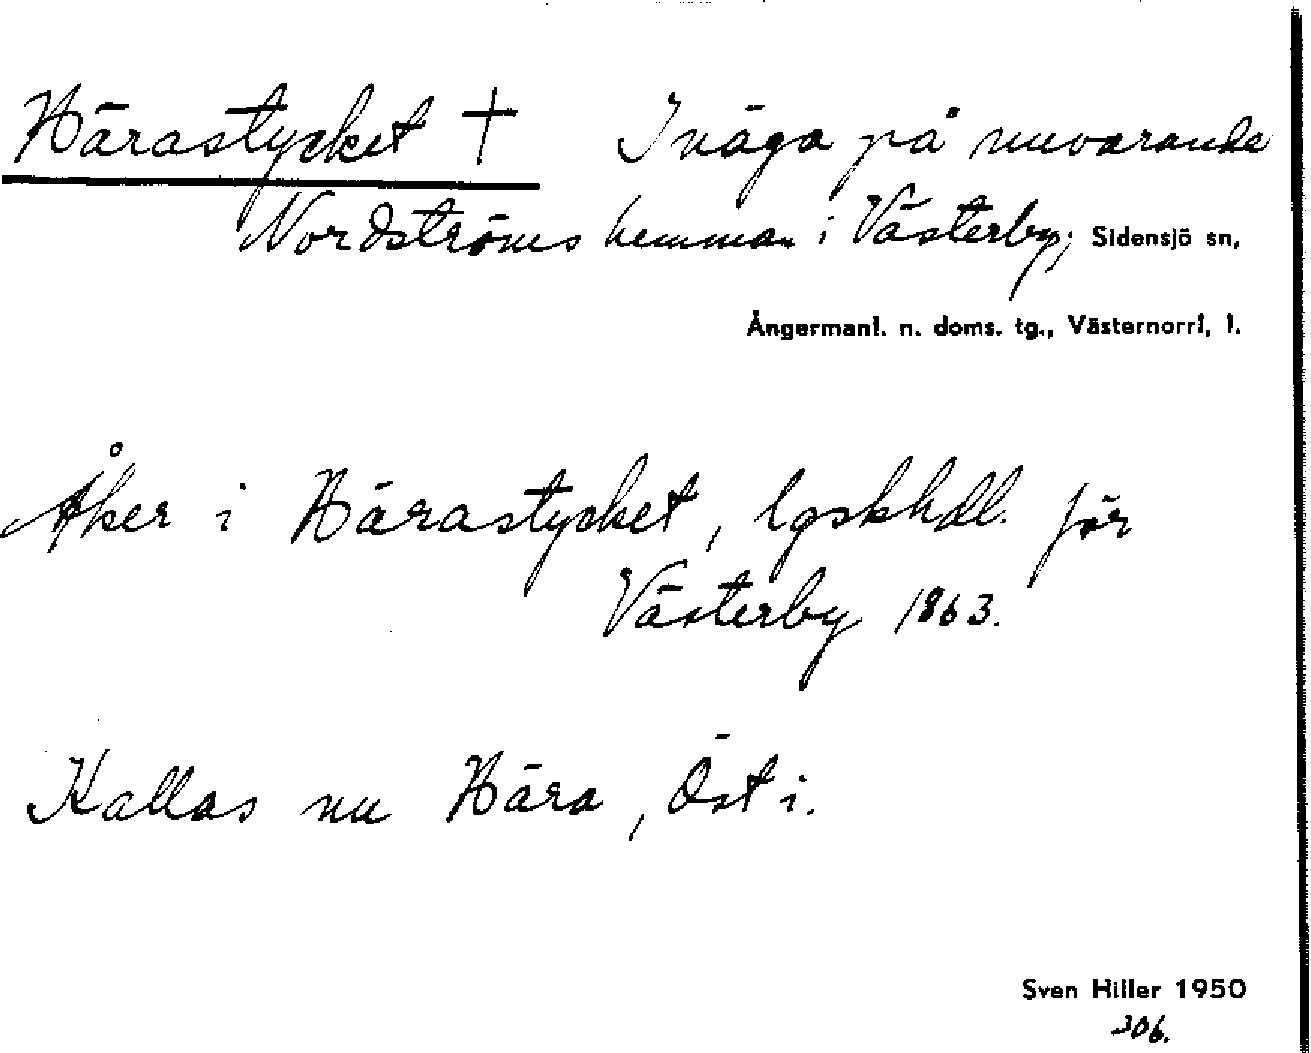 Härastycket † Inäga på nuvarande
Nordströms hemman i Västerby; Sidensjö sn,
Ångermanl. n. doms. tg., Västernorrl, l.
Åker i Härastycket, lgskhdl. för
Västerby 1863.
Kallas nu Hära, Öst i.
Sven Hiller 1950
306.